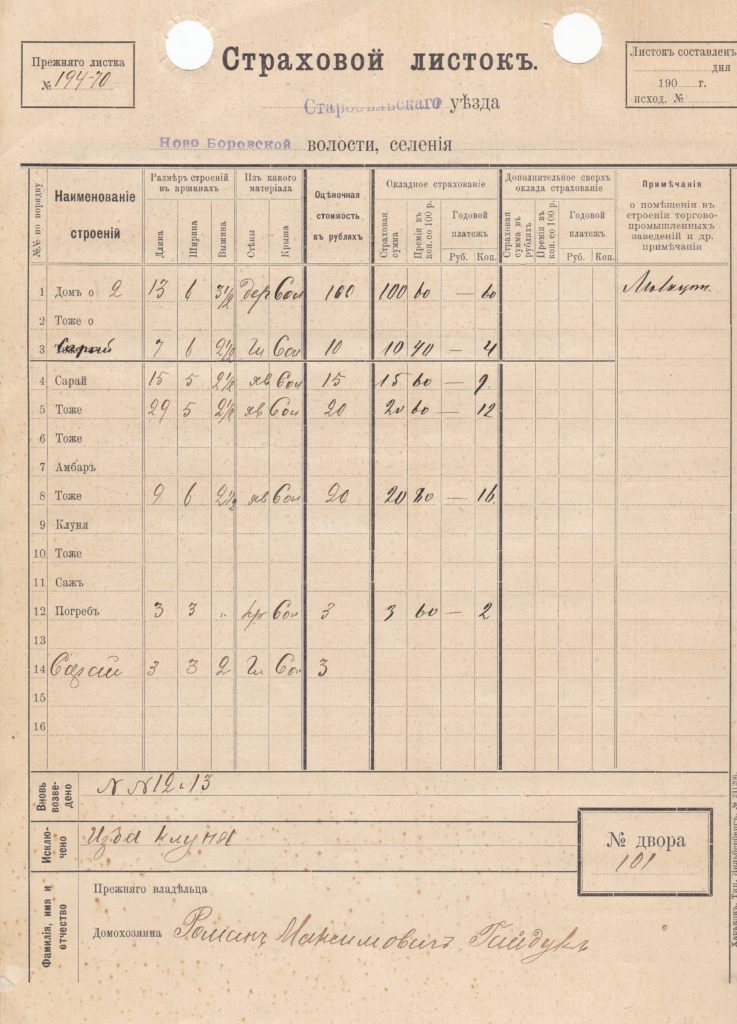 Страховой листокъ.
Прежняго листка
№ 194-70
Листокъ составленъ
дня
190 г.
исход. №
Старобѣльскаго уѣзда
Ново Боровской волости, селенія
№№ по порядку
Наименованіе строеній
Размѣръ строеній въ аршинахъ
Длина Ширина Вышина
Изъ какого матеріала
Стѣны Крыша
Оцѣночная стоимость въ рубляхъ
Окладное страхованіе
Страховая сумма
Преміи въ коп. со 100 р.
Годовой платежъ
Руб. Коп.
Дополнительное сверхъ оклада страхованіе
Страховая сумма въ рубляхъ
Преміи въ коп. со 100 р.
Годовой платежъ
Руб. Коп.
Примѣчанія
о помѣщеніи въ строеніи торгово-промышленныхъ заведеній и др. примѣчанія
1 Домъ о 2 13 6 3½ дер Сол 100 100 60 — 60
2 Тоже о
3 Сарай 7 6 2½ Гл Сол 10 10 40 — 4
4 Сарай 15 5 2½ яв Сол 15 15 60 — 9
5 Тоже 29 5 2½ яв Сол 20 20 60 — 12
6 Тоже
7 Амбаръ
8 Тоже 9 6 2½ яв Сол 20 20 80 — 16
9 Клуня
10 Тоже
11 Сажъ
12 Погребъ 3 3 " Сол 3 3 60 — 2
13
14 Сарай 3 3 2 Гл Сол 3
15
16
Вновь возведено
N N 12 и 13
Исключено
Изба клуня
№ двора
101
Фамилія, имя и отчество
Прежняго владѣльца
Домохозяина Романъ Максимовичъ Гайдукъ